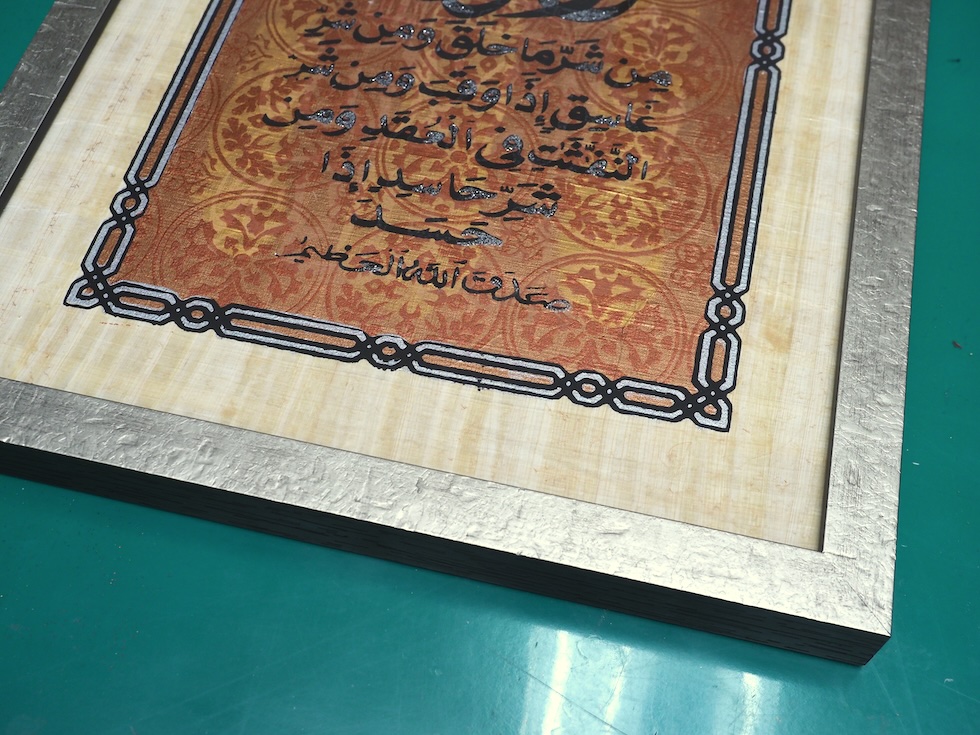 مِن شَرِّ مَا خَلَقَ وَمِن شَرِّ
غَاسِقٍ إِذَا وَقَبَ وَمِن شَرِّ
النَّفَّٰثَٰتِ فِى الْعُقَدِ وَمِن
شَرِّ حَاسِدٍ إِذَا
حَسَدَ
صدق الله العظيم